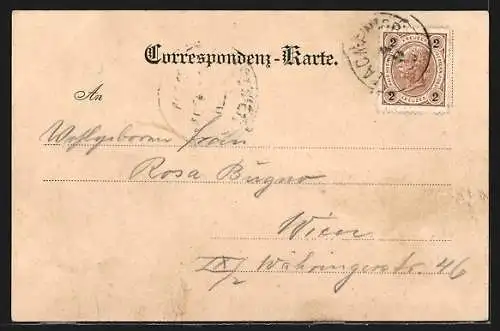 Correspondenz-Karte.
2 2
2 KREUZER 2
An
Wohlgeboren Fräuln
Rosa Bugno
Wien
IX/2 Währingerstr. 46